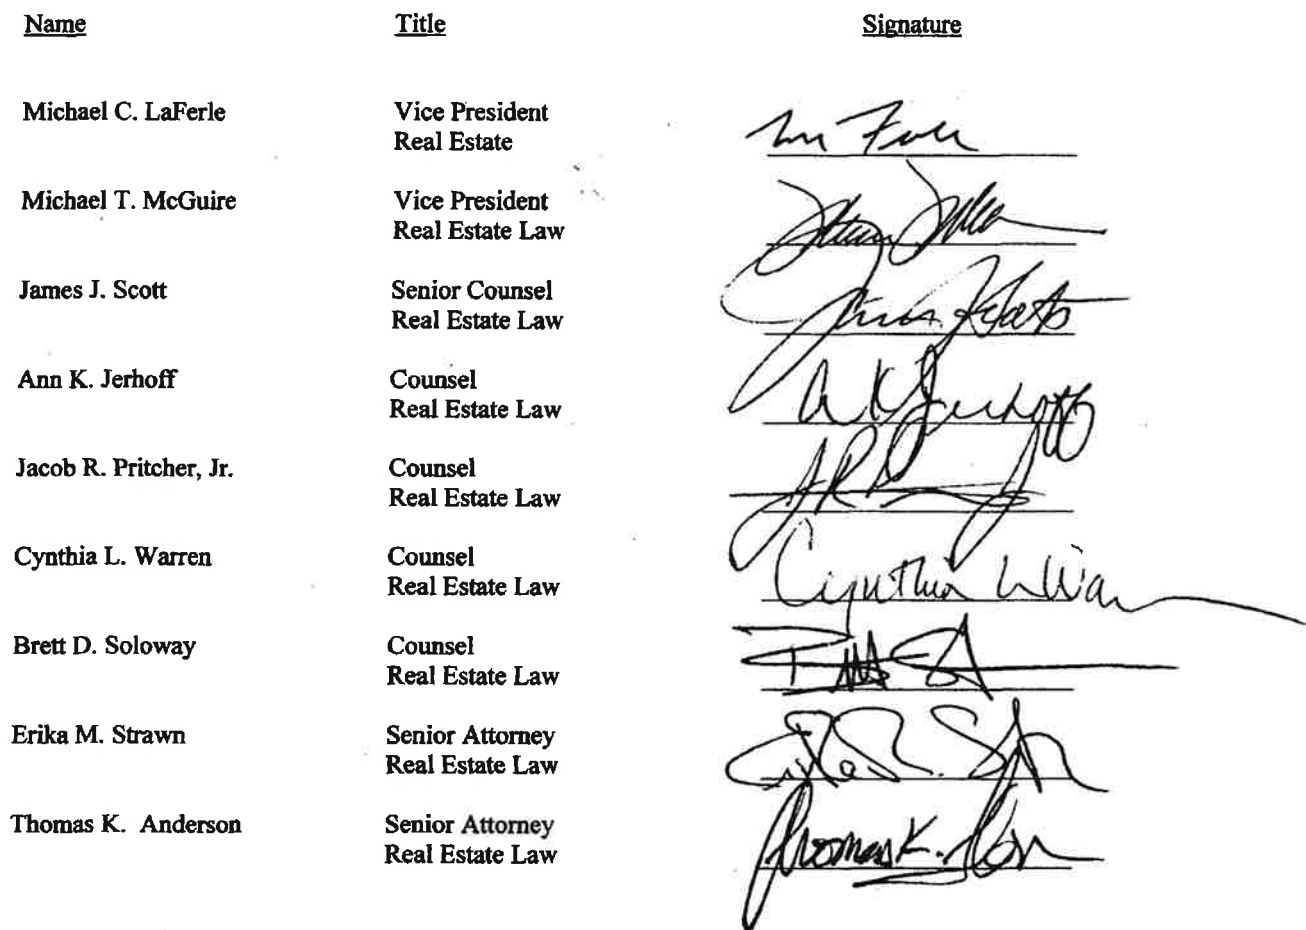 Name Title Signature
Michael C. LaFerle Vice President
Real Estate
Michael T. McGuire Vice President
Real Estate Law
James J. Scott Senior Counsel
Real Estate Law
Ann K. Jerhoff Counsel
Real Estate Law A K Jerhoff
Jacob R. Pritcher, Jr. Counsel
Real Estate Law
Cynthia L. Warren Counsel
Real Estate Law Cynthia L War
Brett D. Soloway Counsel
Real Estate Law
Erika M. Strawn Senior Attorney
Real Estate Law
Thomas K. Anderson Senior Attorney
Real Estate Law Thomas K.